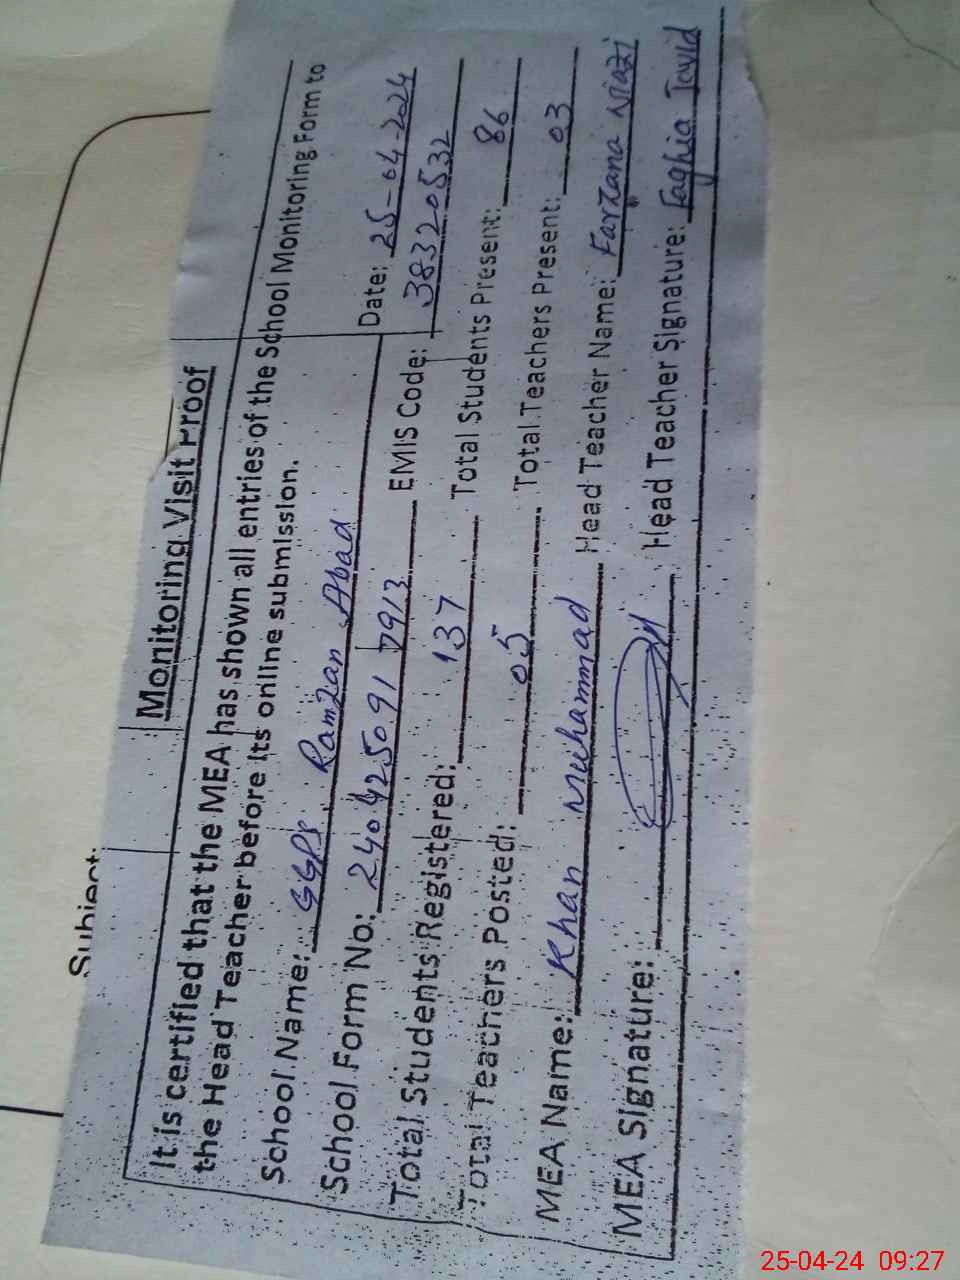 Subject:
Monitoring Visit Proof
It is certified that the MEA has shown all entries of the School Monitoring Form to
the Head Teacher before its online submission.
School Name: GGPS Ramzan Abad Date: 25-04-2024
School Form No: 2404250917913 EMIS Code: 38320532
Total Students Registered: 137 Total Students Present: 86
Total Teachers Posted: 05 Total Teachers Present: 03
MEA Name: Khan Muhammad Head Teacher Name: Farzana Niazi
MEA Signature: Head Teacher Signature:
25-04-24 09:27